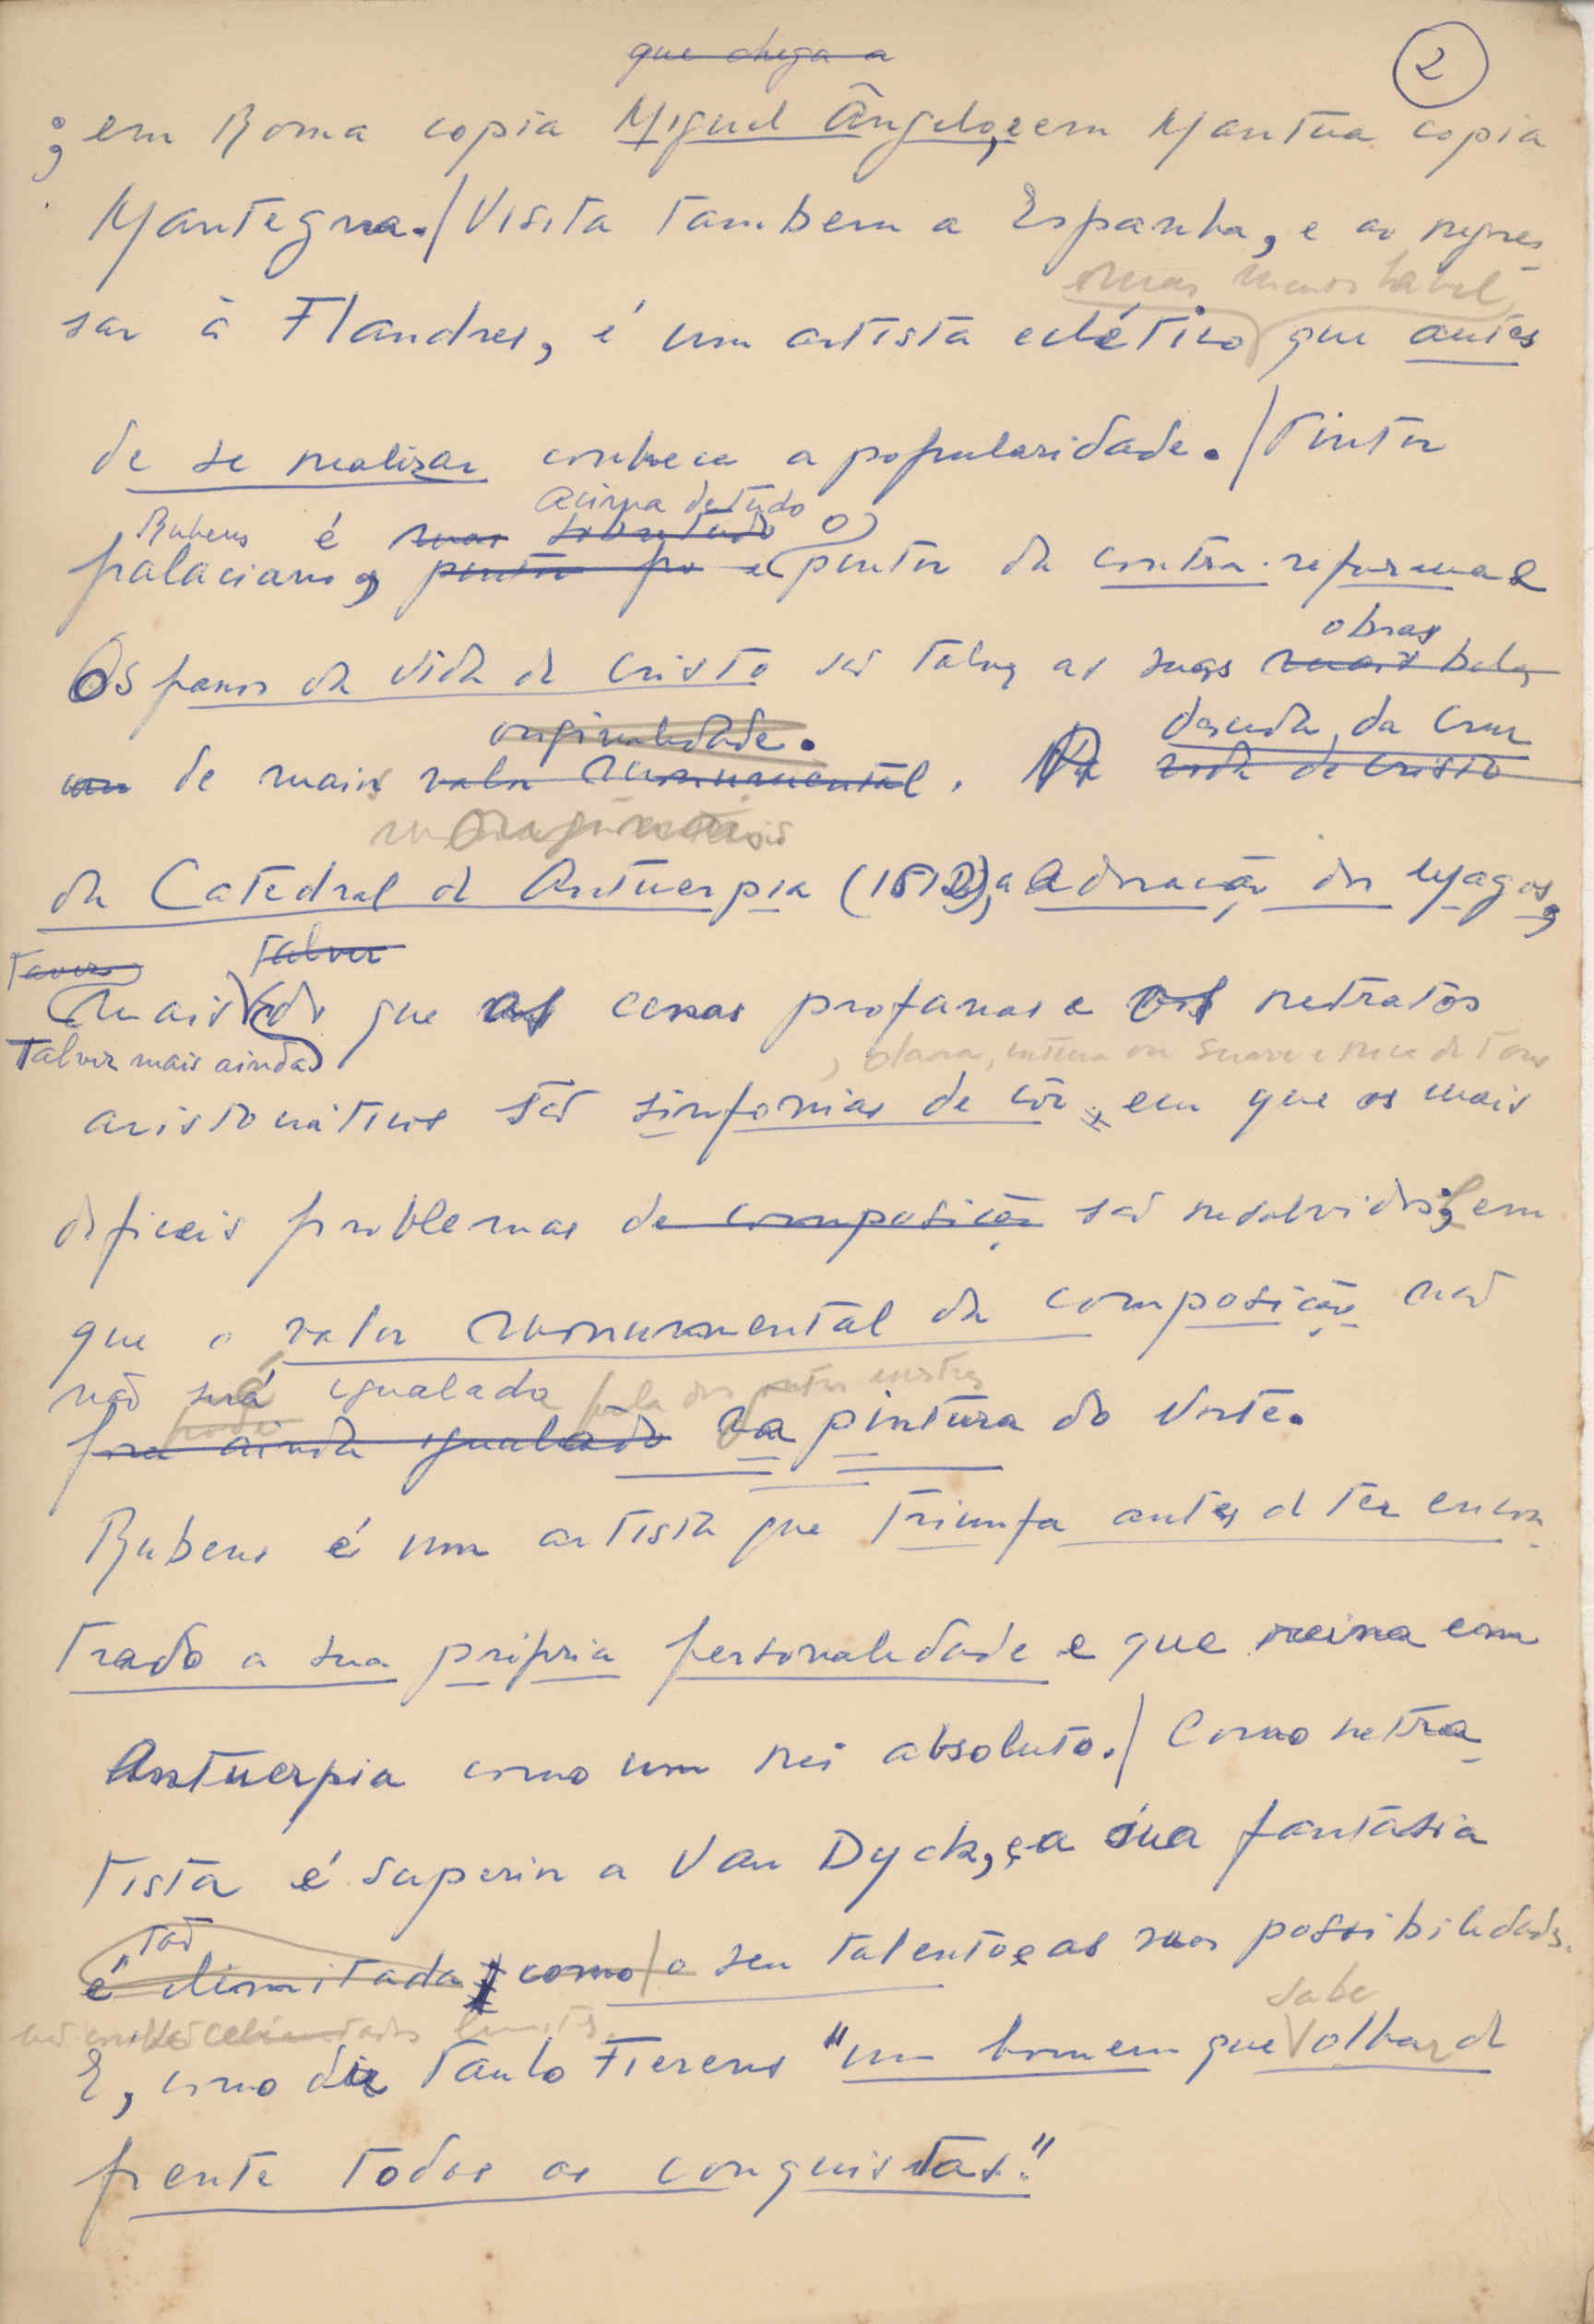 que chega a
2
; em Roma copia Miguel Ângelo, e em Mantua copia
Mantegna./ Visita tambem a Espanha, e ao regres-
mas menos habil,
sar à Flandres, é um artista eclético que antes
de se realizar conhece a popularidade./ Pintor
acima de tudo
Rubens é mas sobretudo o
palaciano, pintor po e pintor da contra-reforma e
obras
Os panos da vida de Cristo são talvez as suas mais belas
originalidade. descida da Cruz
de mais valor monumental. Na vida de Cristo
da Catedral de Antuerpia (1612), a Adoração dos Magos,
talvez
mais do que as cenas profanas e os retratos
Talvez mais ainda
, clara, intensa ou suave e rica de tons
aristocráticos são sinfonias de côr, em que os mais
dificeis problemas de composição são resolvidos; em
que o valor monumental da composição não
não será igualada
fora ainda igualado na pintura do Norte.
Rubens é um artista que triunfa antes de ter encon-
trado a sua própria personalidade e que reina em
Antuerpia como um rei absoluto./ Como retra-
tista é superior a Van Dyck, e a sua fantasia
tão
é ilimitada como o seu talento e as suas possibilidades.
sabe
E, como diz Paulo Fierens "um homem que olhar de
frente todas as conquistas."